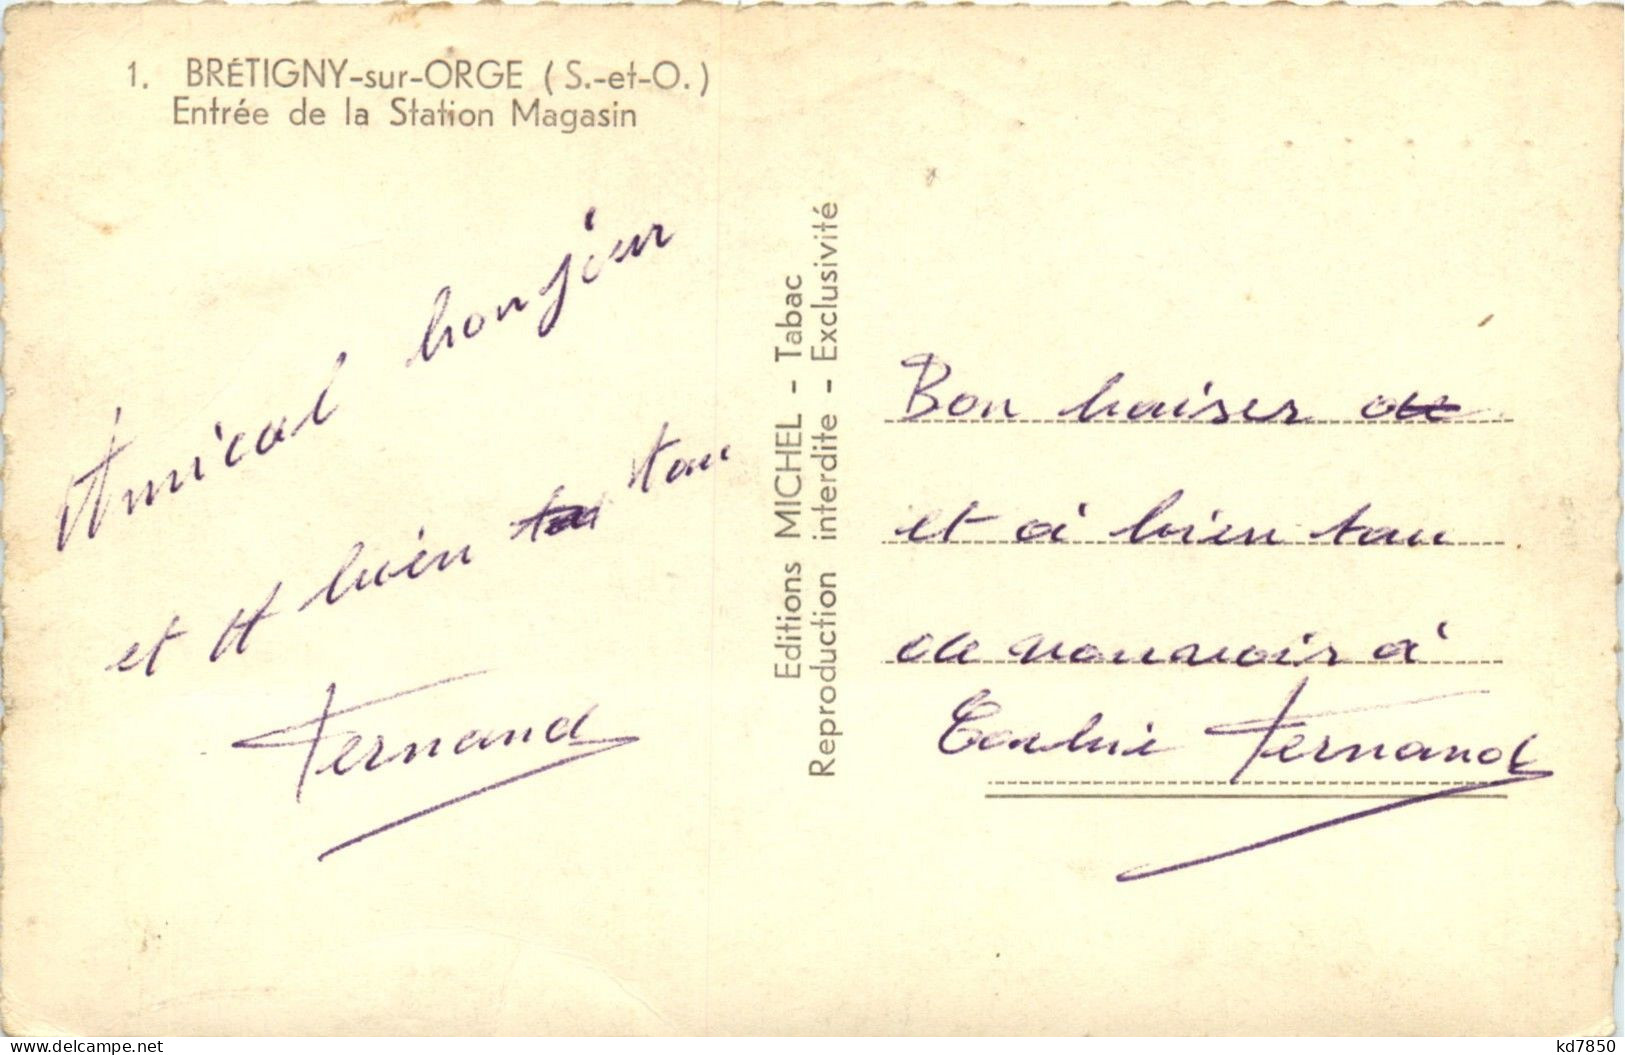 1. BRÉTIGNY-sur-ORGE (S.-et-O.)
Entrée de la Station Magasin
Amical bonjour
et A bien tau
Fernand
Editions MICHEL - Tabac
Reproduction interdite - Exclusivité
Bon baiser de
et à bien tau
de vouavoir à
Fernand
delcampe.net
kd7850